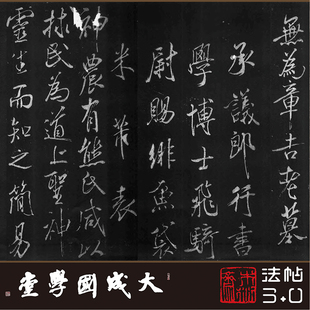 無為章吉老墓
承議郎行書
學博士飛騎
尉賜緋魚袋
米芾表
神農有熊氏咸以
拯民為道上聖神
靈生而知之簡易
大成國學堂
法帖
3.0